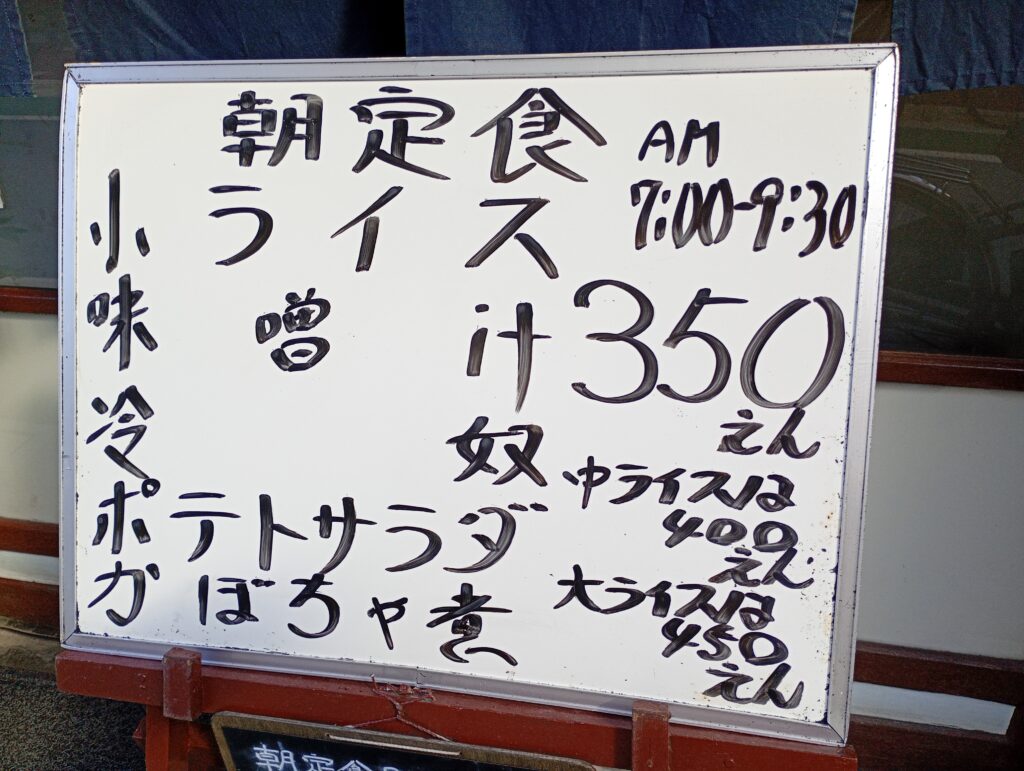 朝定食
AM
7:00-9:30
小ライス
味噌汁
350
えん
冷奴
ポテトサラダ
カぼちゃ煮
中ライスは
400
えん
大ライスは
450
えん
朝定食